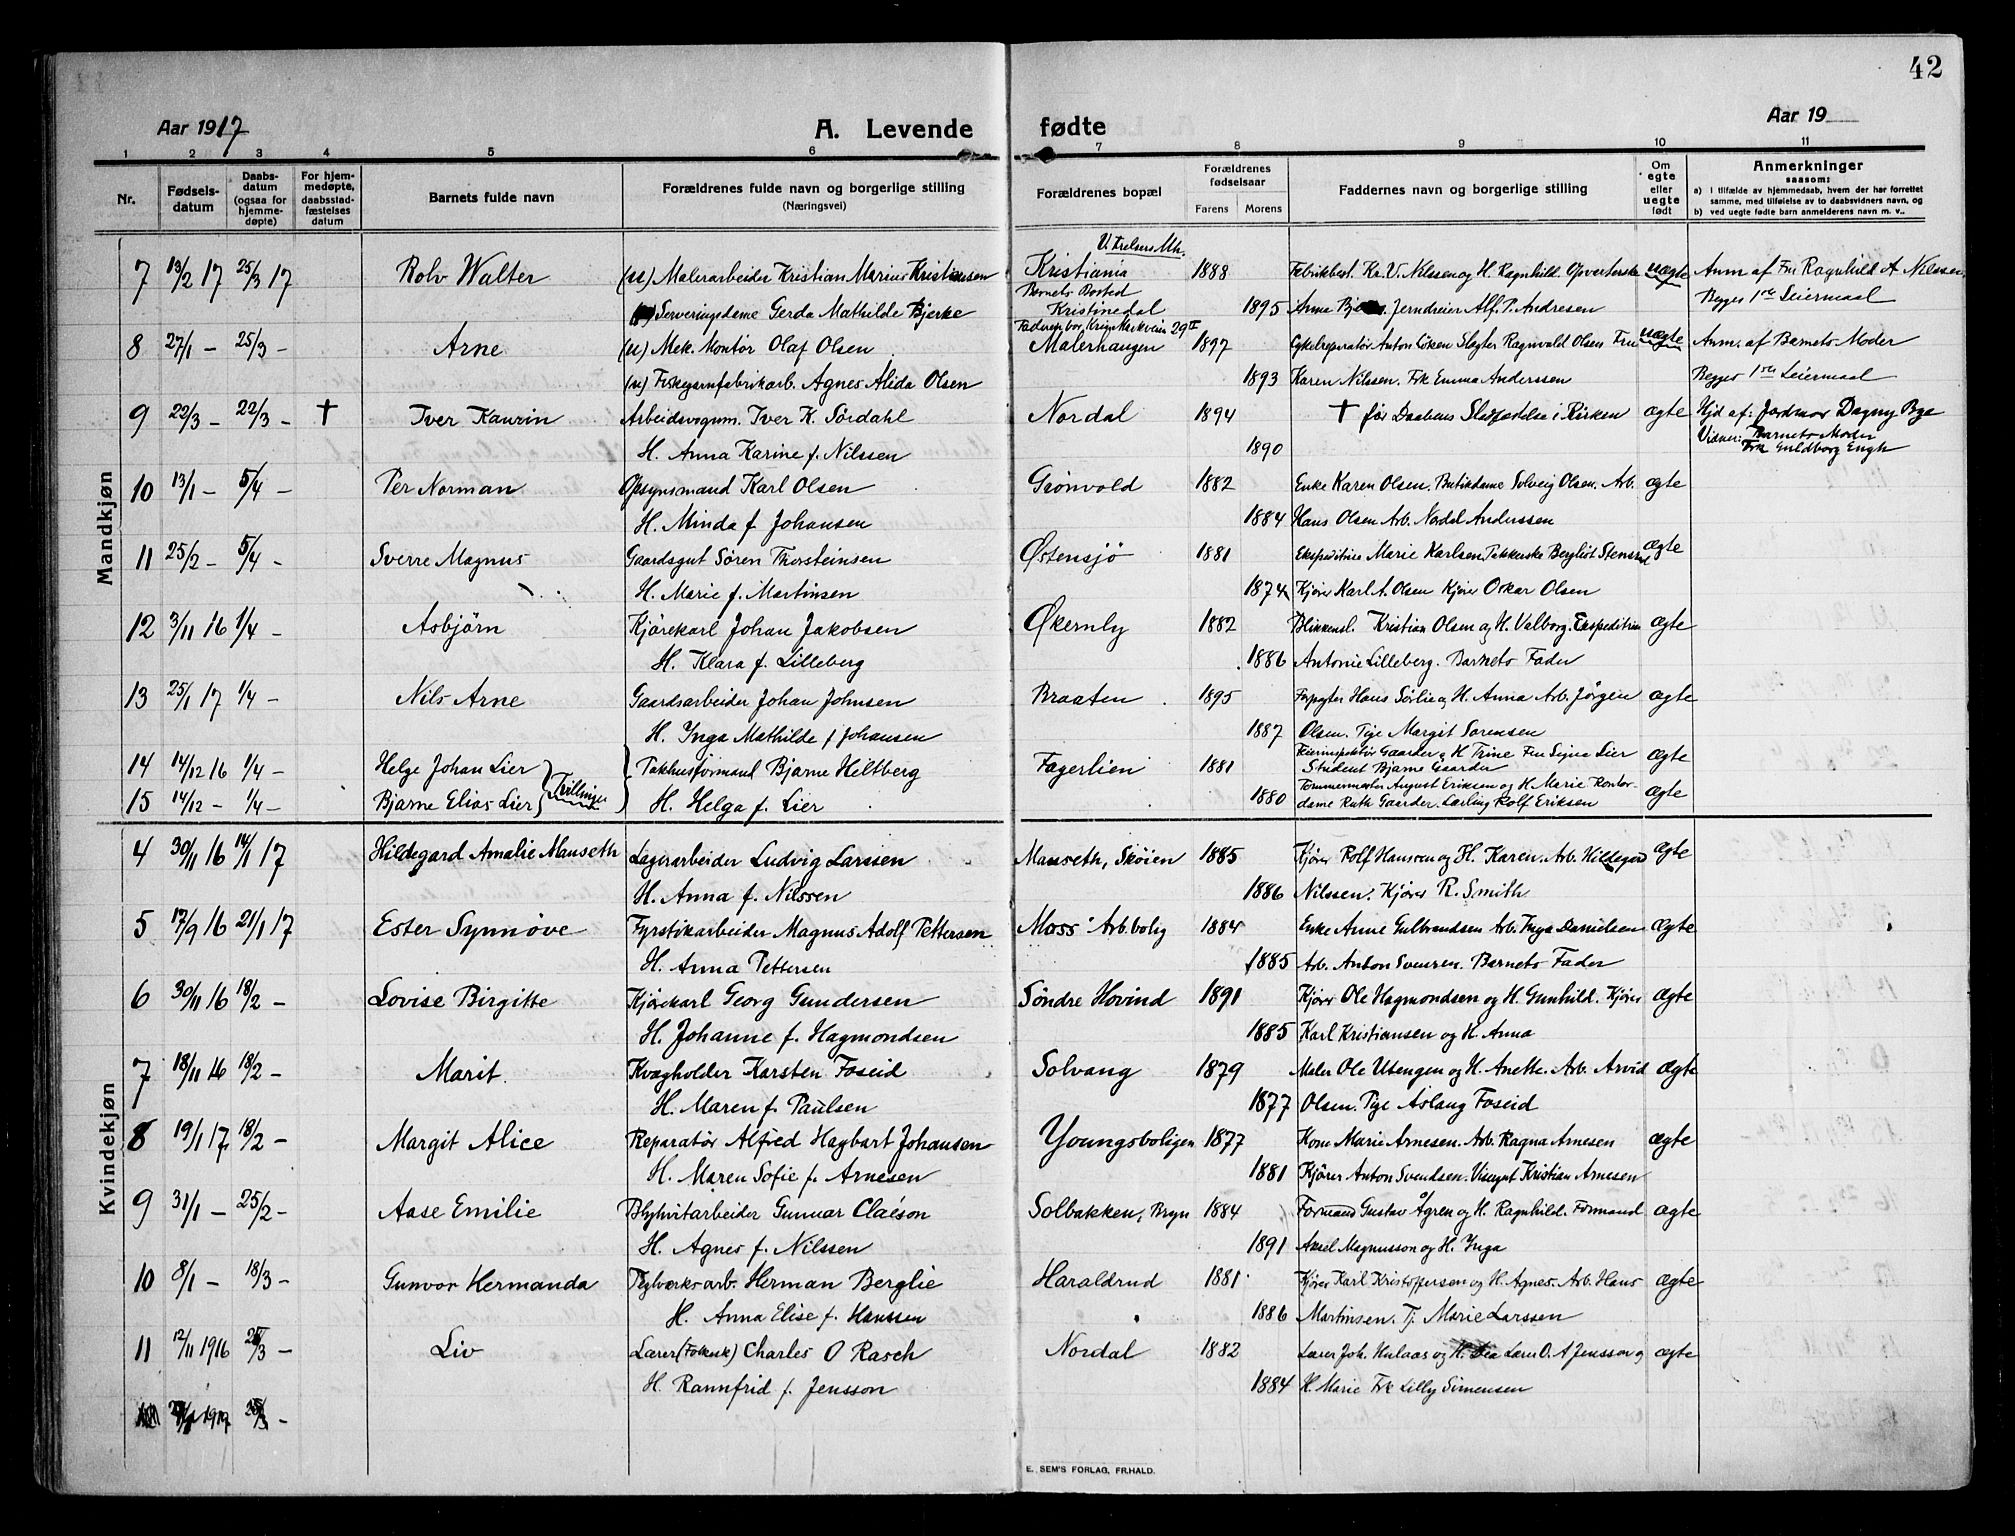 42
Aar 1917
A. Levende fødte
Aar 19
1 2 3 4 5 6 7 8 9 10 11
Nr.
Fødsels-
datum
Daabs-
datum
(ogsaa for
hjemme-
døpte)
For hjem-
medøpte,
daabsstad-
fæstelses
datum
Barnets fulde navn
Forældrenes fulde navn og borgerlige stilling
(Næringsvei)
Forældrenes bopæl
Forældrenes
fødselsaar
Farens Morens
Faddernes navn og borgerlige stilling
Om
egte
eller
uegte
født
Anmerkninger
saasom:
a) i tilfælde av hjemmedaab, hvem der har forrettet
samme, med tilføielse av to daabsvidners navn, og
b) ved uegte fødte barn anmelderens navn m. v..
Mandkjøn
7 13/2 17 25/3 17 Rolv Walter (u) Malerarbeider Kristian Marius Kristiansen Kristiania 1888 Fabrikbest. Kr. V. Nilssen og H. Ragnhild. Opvarterske uægte Anm af Fru Ragnhild A Nilssen.
Barnets Bosted
Serveringsdame Gerda Mathilde Bjerke Kristinedal 1895 Anna Jerndreier Alf. P. Andresen Begges 1ste Leiermaal
8 27/1 – 25/3 – Arne (u) Mek. Montør Olaf Olsen Malerhaugen 1897 Cykelreparatør Anton Løken Slagter Ragnvald Olsen Fru uægte Anm. af Barnets Moder
(u) Fiskegarnfabrikarb. Agnes Alida Olsen 1893 Karen Nilssen. Frk Emma Anderssen Begges 1ste Leiermaal
9 22/3 – 22/3 – † Iver Kaurin Arbeidsvognm. Iver K. Sørdahl Nordal 1894 † før Daabens Stadfæstelse i Kirken ægte Hjd af: Jordmor Dagny Bye
H. Anna Karine f. Nilssen 1890 Vidner: Barnets Moder
Frk Guldborg Engh
10 13/1 – 5/4 – Per Norman Opsynsmand Karl Olsen Grønvold 1882 Enke Karen Olsen. Butikdame Solveig Olsen. Arb. ægte
H. Minda f. Johansen 1884 Hans Olsen Arb. Nordal Anderssen
11 25/2 – 5/4 – Sverre Magnus Gaardsgut Søren Thorsteinsen Østensjø 1881 Ekspeditrice Marie Karlsen Pakkerske Bergliot Stensrud ægte
H. Marie f. Martinsen 1874 Kjører Karl A. Olsen Kjører Oskar Olsen
12 3/11 16 1/4 – Asbjørn Kjørekarl Johan Jakobsen Økernly 1882 Blikkensl. Kristian Olsen og H. Valborg. Ekspeditrice ægte
H. Klara f. Lilleberg 1886 Antonie Lilleberg. Barnets Fader
13 25/1 17 1/4 – Nils Arne Gaardsarbeider Johan Johnsen Braaten 1895 Forpagter Hans Sørlie og H. Anna Arb. Jørgen ægte
H. Inga Mathilde f Johansen 1887 Olsen. Pige Margit Sørensen
14 14/12 16 1/4 – Helge Johan Lier Pakhusformand Bjarne Heltberg Fagerlien 1881 Gaarder og H Trine Fru Signe Lier ægte
Student Bjarne Gaarder
Tvillinger
15 14/12 – 1/4 – Bjarne Elias Lier H. Helga f. Lier 1880 Tømmermester August Eriksen og H Marie Kontor- ægte
dame Ruth Gaarder. Lærling Rolf Eriksen
Kvindekjøn
4 30/11 16 14/1 17 Hildegard Amalie Manseth Lagerarbeider Ludvig Larssen Manseth, Skøien 1885 Kjører Rolf Hanssen og H. Karen. Arb. Hildegard ægte
H. Anna f. Nilssen 1886 Nilssen. Kjører R. Smith
5 17/9 16 21/1 17 Ester Synnøve Fyrstikarbeider Magnus Adolf Pettersen Moss' Arb.bolig 1884 Enke Anne Gulbrandsen Arb. Inga Danielsen ægte
H. Anna Pettersen 1885 Arb. Anton Svensen. Barnets Fader
6 30/11 16 18/2 – Lovise Birgitte Kjørekarl Georg Gundersen Søndre Hovind 1891 Kjører Ole Hagmondsen og H. Gunhild. Kjører ægte
H. Johanne f. Hagmondsen 1885 Karl Kristiansen og H. Anna
7 18/11 16 18/2 – Marit. Kvægholder Karsten Foseid Solvang 1879 Maler Ole Utengen og H. Anette. Arb. Arvid ægte
H. Maren f. Paulsen 1877 Olsen. Pige Aslaug Foseid
8 19/1 17 18/2 – Margit Alice Reparatør Alfred Hagbart Johansen Youngsboligen 1877 Kone Marie Arnesen. Arb. Ragna Arnesen ægte
H. Maren Sofie f. Arnesen 1881 Kjører Anton Svendsen. Visergut Kristian Arnesen
9 31/1 – 25/2 – Aase Emilie Blyhvitarbeider Gunnar Claéson Solbakken, Bryn 1884 Formand Gustav Ågren og H. Ragnhild. Formand ægte
H. Agnes f. Nilssen 1891 Aksel Magnusson og H. Inga
10 8/1 – 18/3 – Gunvor Hermanda Teglverksarb. Herman Berglie Haraldrud 1881 Kjører Karl Kristoffersen og H. Agnes. Arb. Hans ægte
H. Anna Elise f. Hanssen 1886 Martinsen. Tj. Marie Larssen
11 12/11 1916 25/3 – Liv Lærer (Folkesk) Charles O Rasch Nordal 1882 Lærer Joh. Hulaas og H. Lærer O. A Jensson og ægte
H. Rannfrid f. Jensson 1884 H. Marie Frk Lilly Simensen
E. SEM'S FORLAG, FR.HALD.